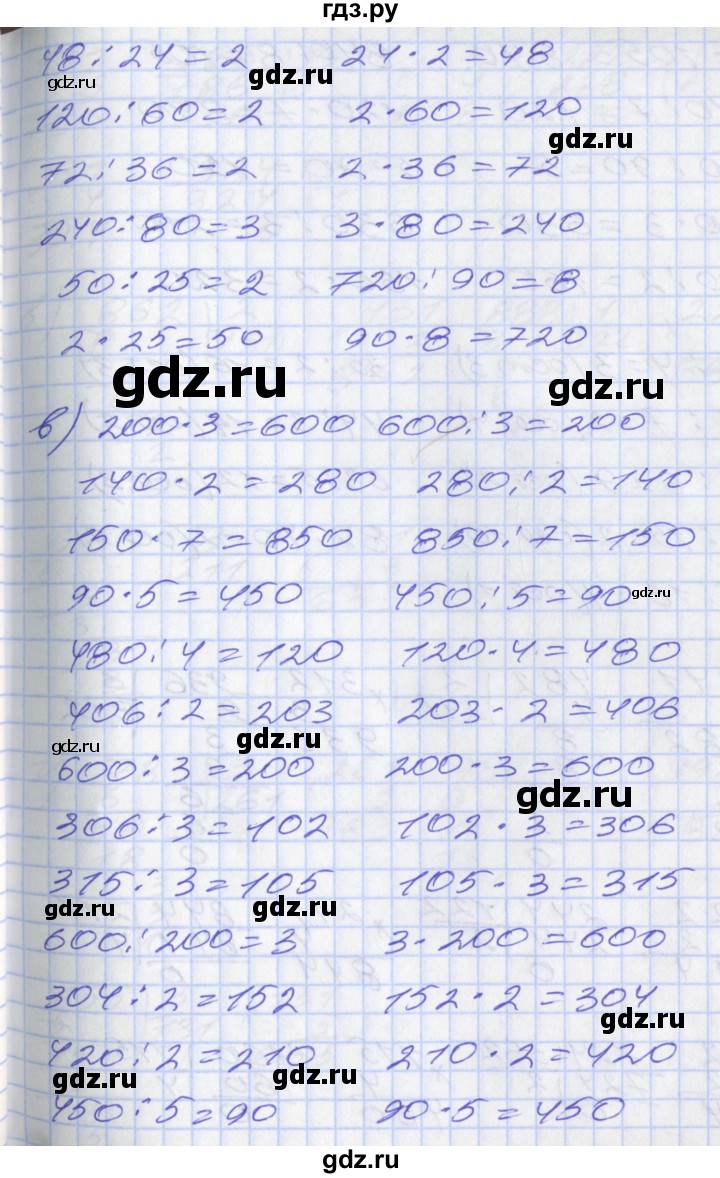 гдз.ру
48:24=2 24·2=48
gdz.ru
gdz.ru
120:60=2 2·60=120
gdz.ru
72:36=2 2·36=72
gdz.ru
240:80=3 3·80=240
50:25=2 720:90=8
2·25=50 90·8=720
gdz.ru
gdz.ru
в) 200·3=600 600:3=200
140·2=280 280:2=140
150·7=850 850:7=150
90·5=450 450:5=90
gdz.ru
480:4=120 120·4=480
406:2=203 203·2=406
gdz.ru
gdz.ru
600:3=200 200·3=600
gdz.ru
306:3=102 102·3=306
315:3=105 105·3=315
gdz.ru
gdz.ru
600:200=3 3·200=600
304:2=152 152·2=304
gdz.ru
420:2=210 210·2=420
gdz.ru
gdz.ru
450:5=90 90·5=450
gdz.ru